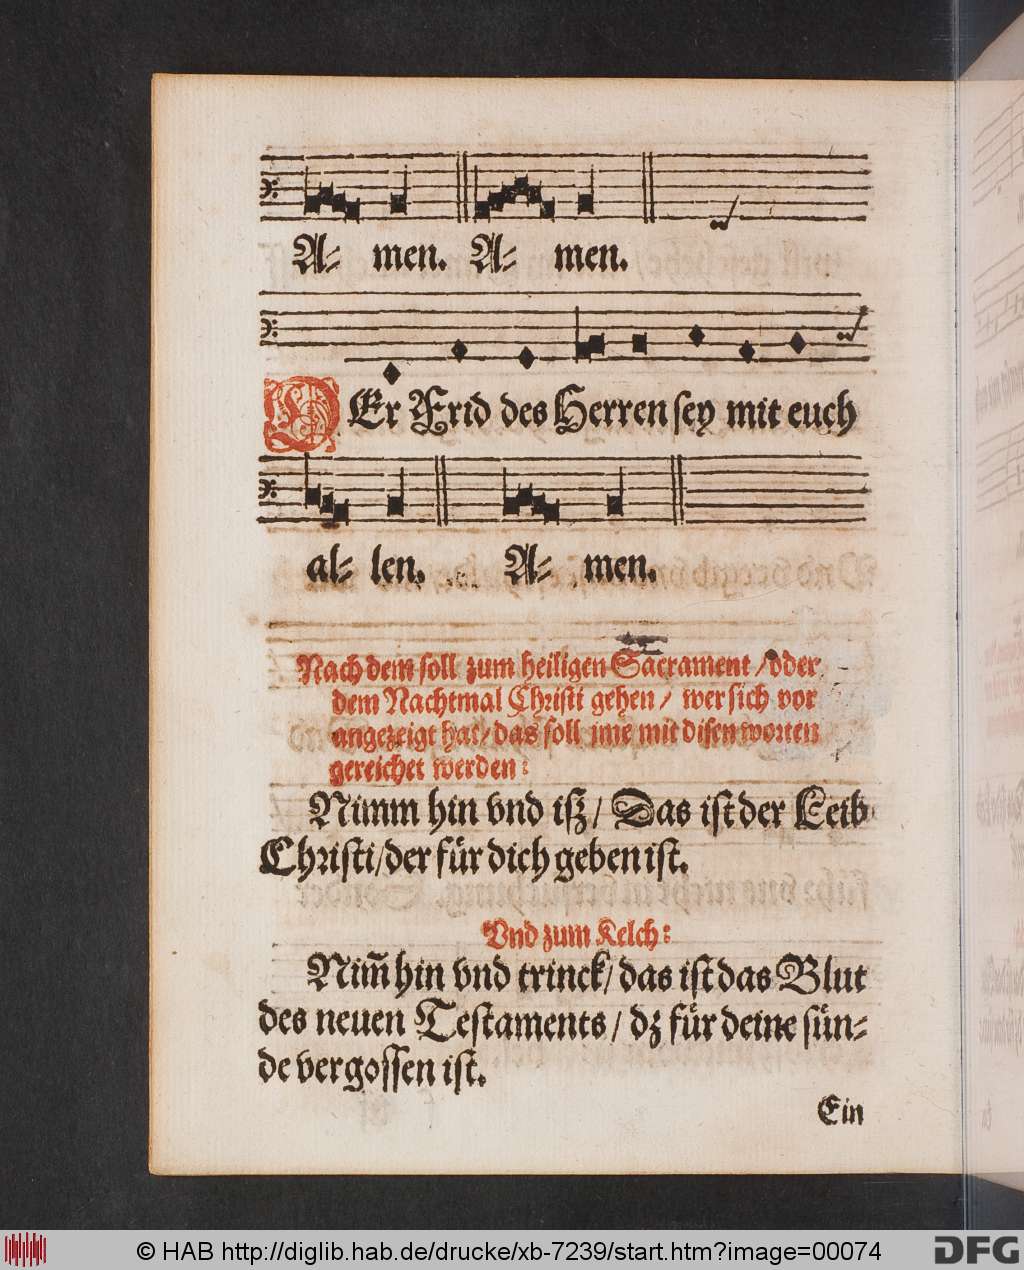 A⸗ men. A⸗ men.
DEr Frid des Herren sey mit euch
al⸗ len. A⸗ men.
Nach dem soll zum heiligen Sacrament / oder
dem Nachtmal Christi gehen / wer sich vor
angezeigt hat / das soll jme mit disen worten
gereichet werden:
Nimm hin vnd iß / Das ist der Leib
Christi / der für dich geben ist.
Vnd zum Kelch:
Nim̃ hin vnd trinck / das ist das Blut
des neuen Testaments / dz für deine sün⸗
de vergossen ist.
Ein
© HAB http://diglib.hab.de/drucke/xb-7239/start.htm?image=00074
DFG